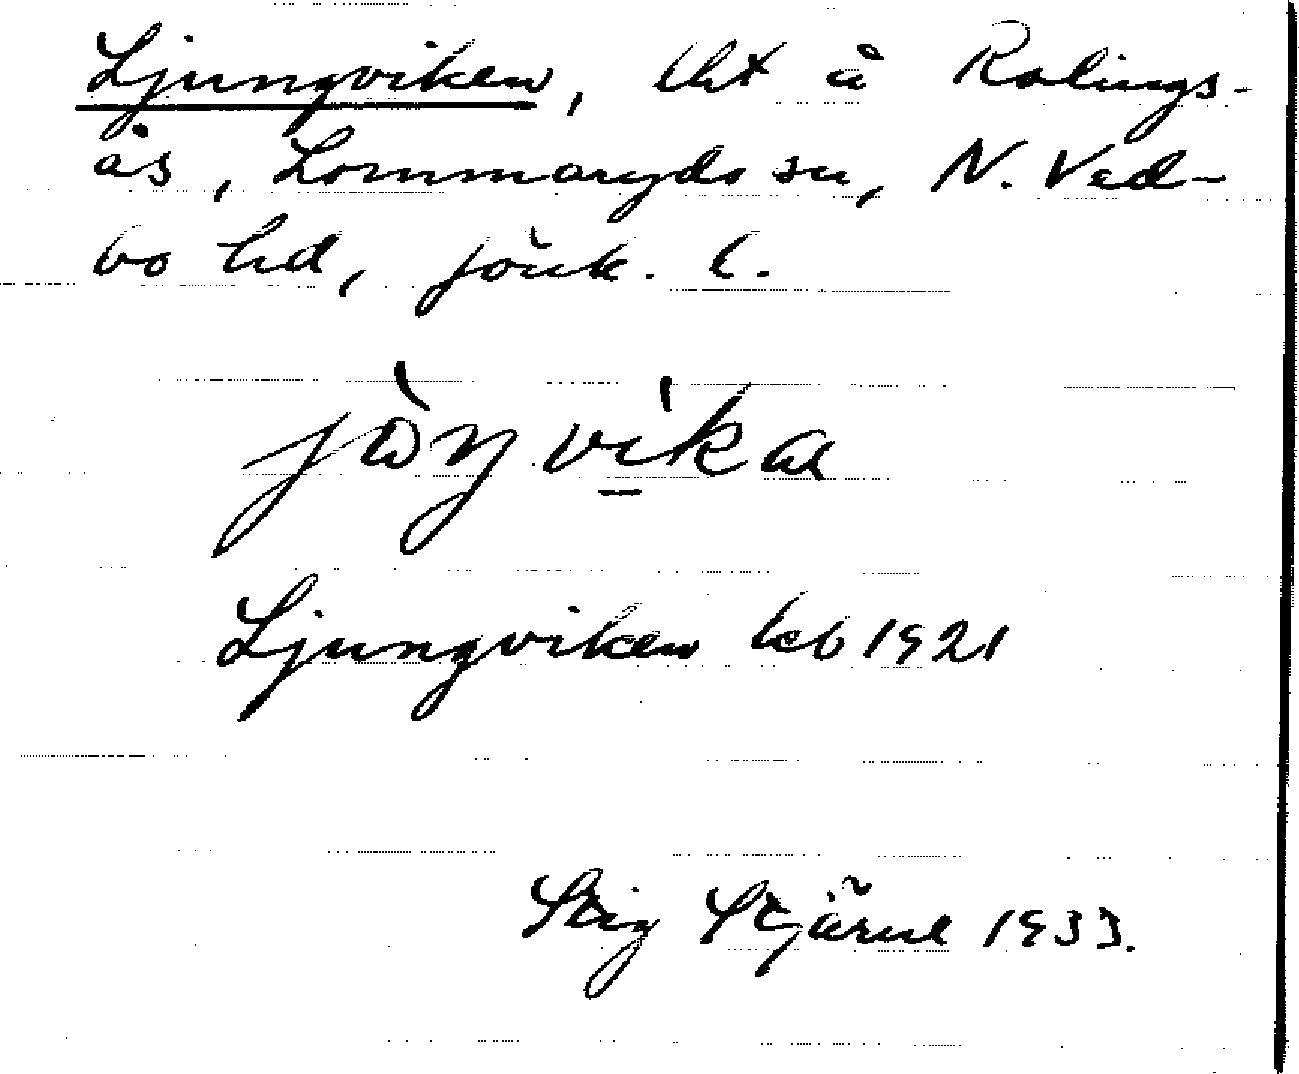 Ljungviken, tht å Ralings-
ås, Lommaryds sn, N. Ved-
bo hd, Jönk. l.
jɷ̀ŋvìka
Ljungviken kb 1921
Stig Stjärne 1933.